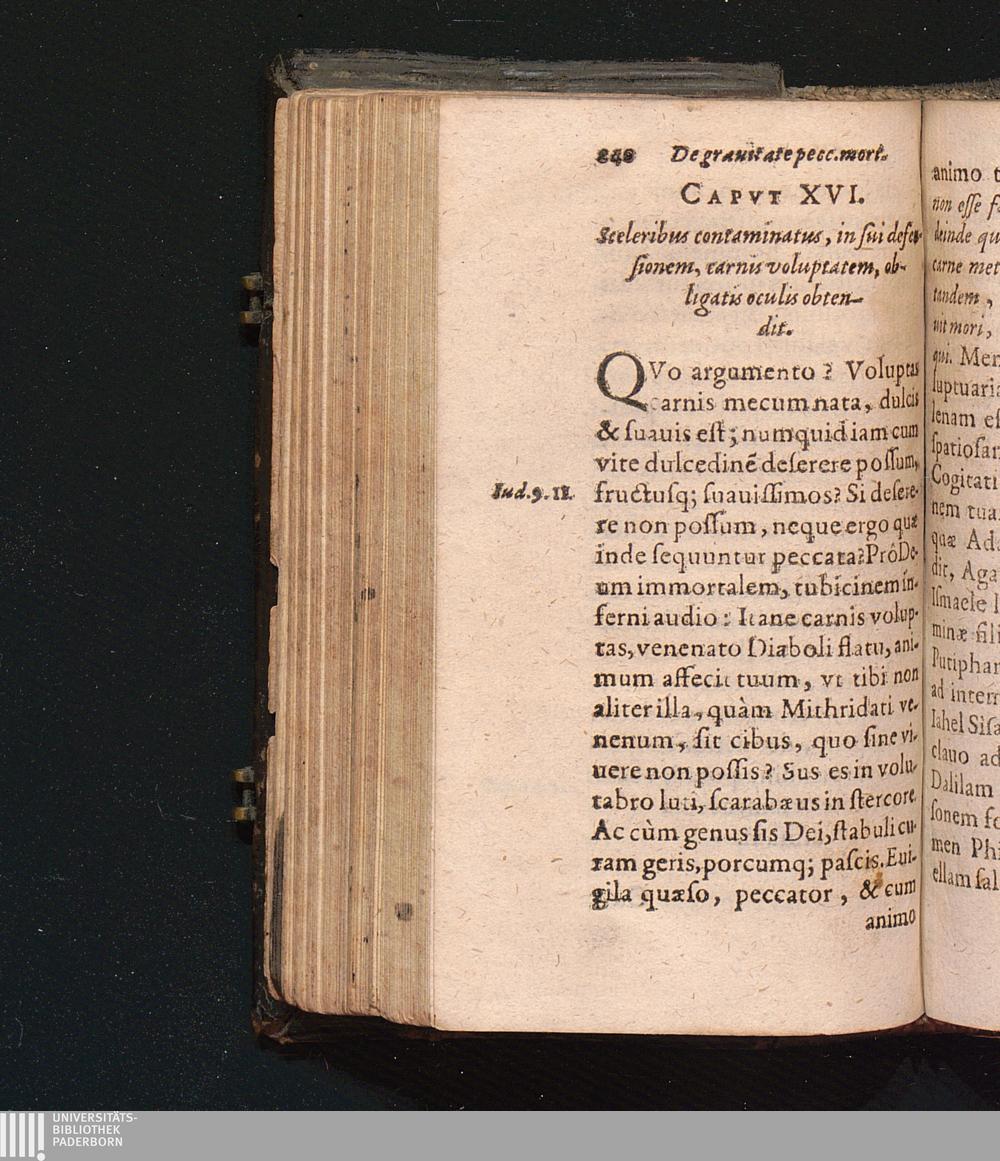 240 De grauitate pecc. mort.
CAPVT XVI.
Sceleribus contaminatus, in sui defen-
sionem, carnis voluptatem, ob-
ligatis oculis obten-
dit.
QVo argumento? Voluptas
carnis mecum nata, dulcis
& suauis est; numquid iam cum
vite dulcedinē deserere possum,
Iud. 9. 11. fructusq; suauissimos? Si desere-
re non possum, neque ergo quæ
inde sequuntur peccata? Prô De-
um immortalem, tubicinem in-
ferni audio: Itane carnis volup-
tas, venenato Diaboli flatu, ani-
mum affecit tuum, vt tibi non
aliter illa, quàm Mithridati ve-
nenum, sit cibus, quo sine vi-
uere non possis? Sus es in volu-
tabro luti, scarabæus in stercore.
Ac cùm genus sis Dei, stabuli cu-
ram geris, porcumq; pascis. Eui-
gila quæso, peccator, & cum
animo
animo
non esse
deinde
carne
tandem,
uit mori,
qui.
luptuaria
lenam
spatiosam
Cogitati
nem tua
quæ
dit,
Ismaele
minæ
Putiphar
ad
Iahel
clauo
Dalilam
sonem
men
ellam
UNIVERSITÄTS-
BIBLIOTHEK
PADERBORN